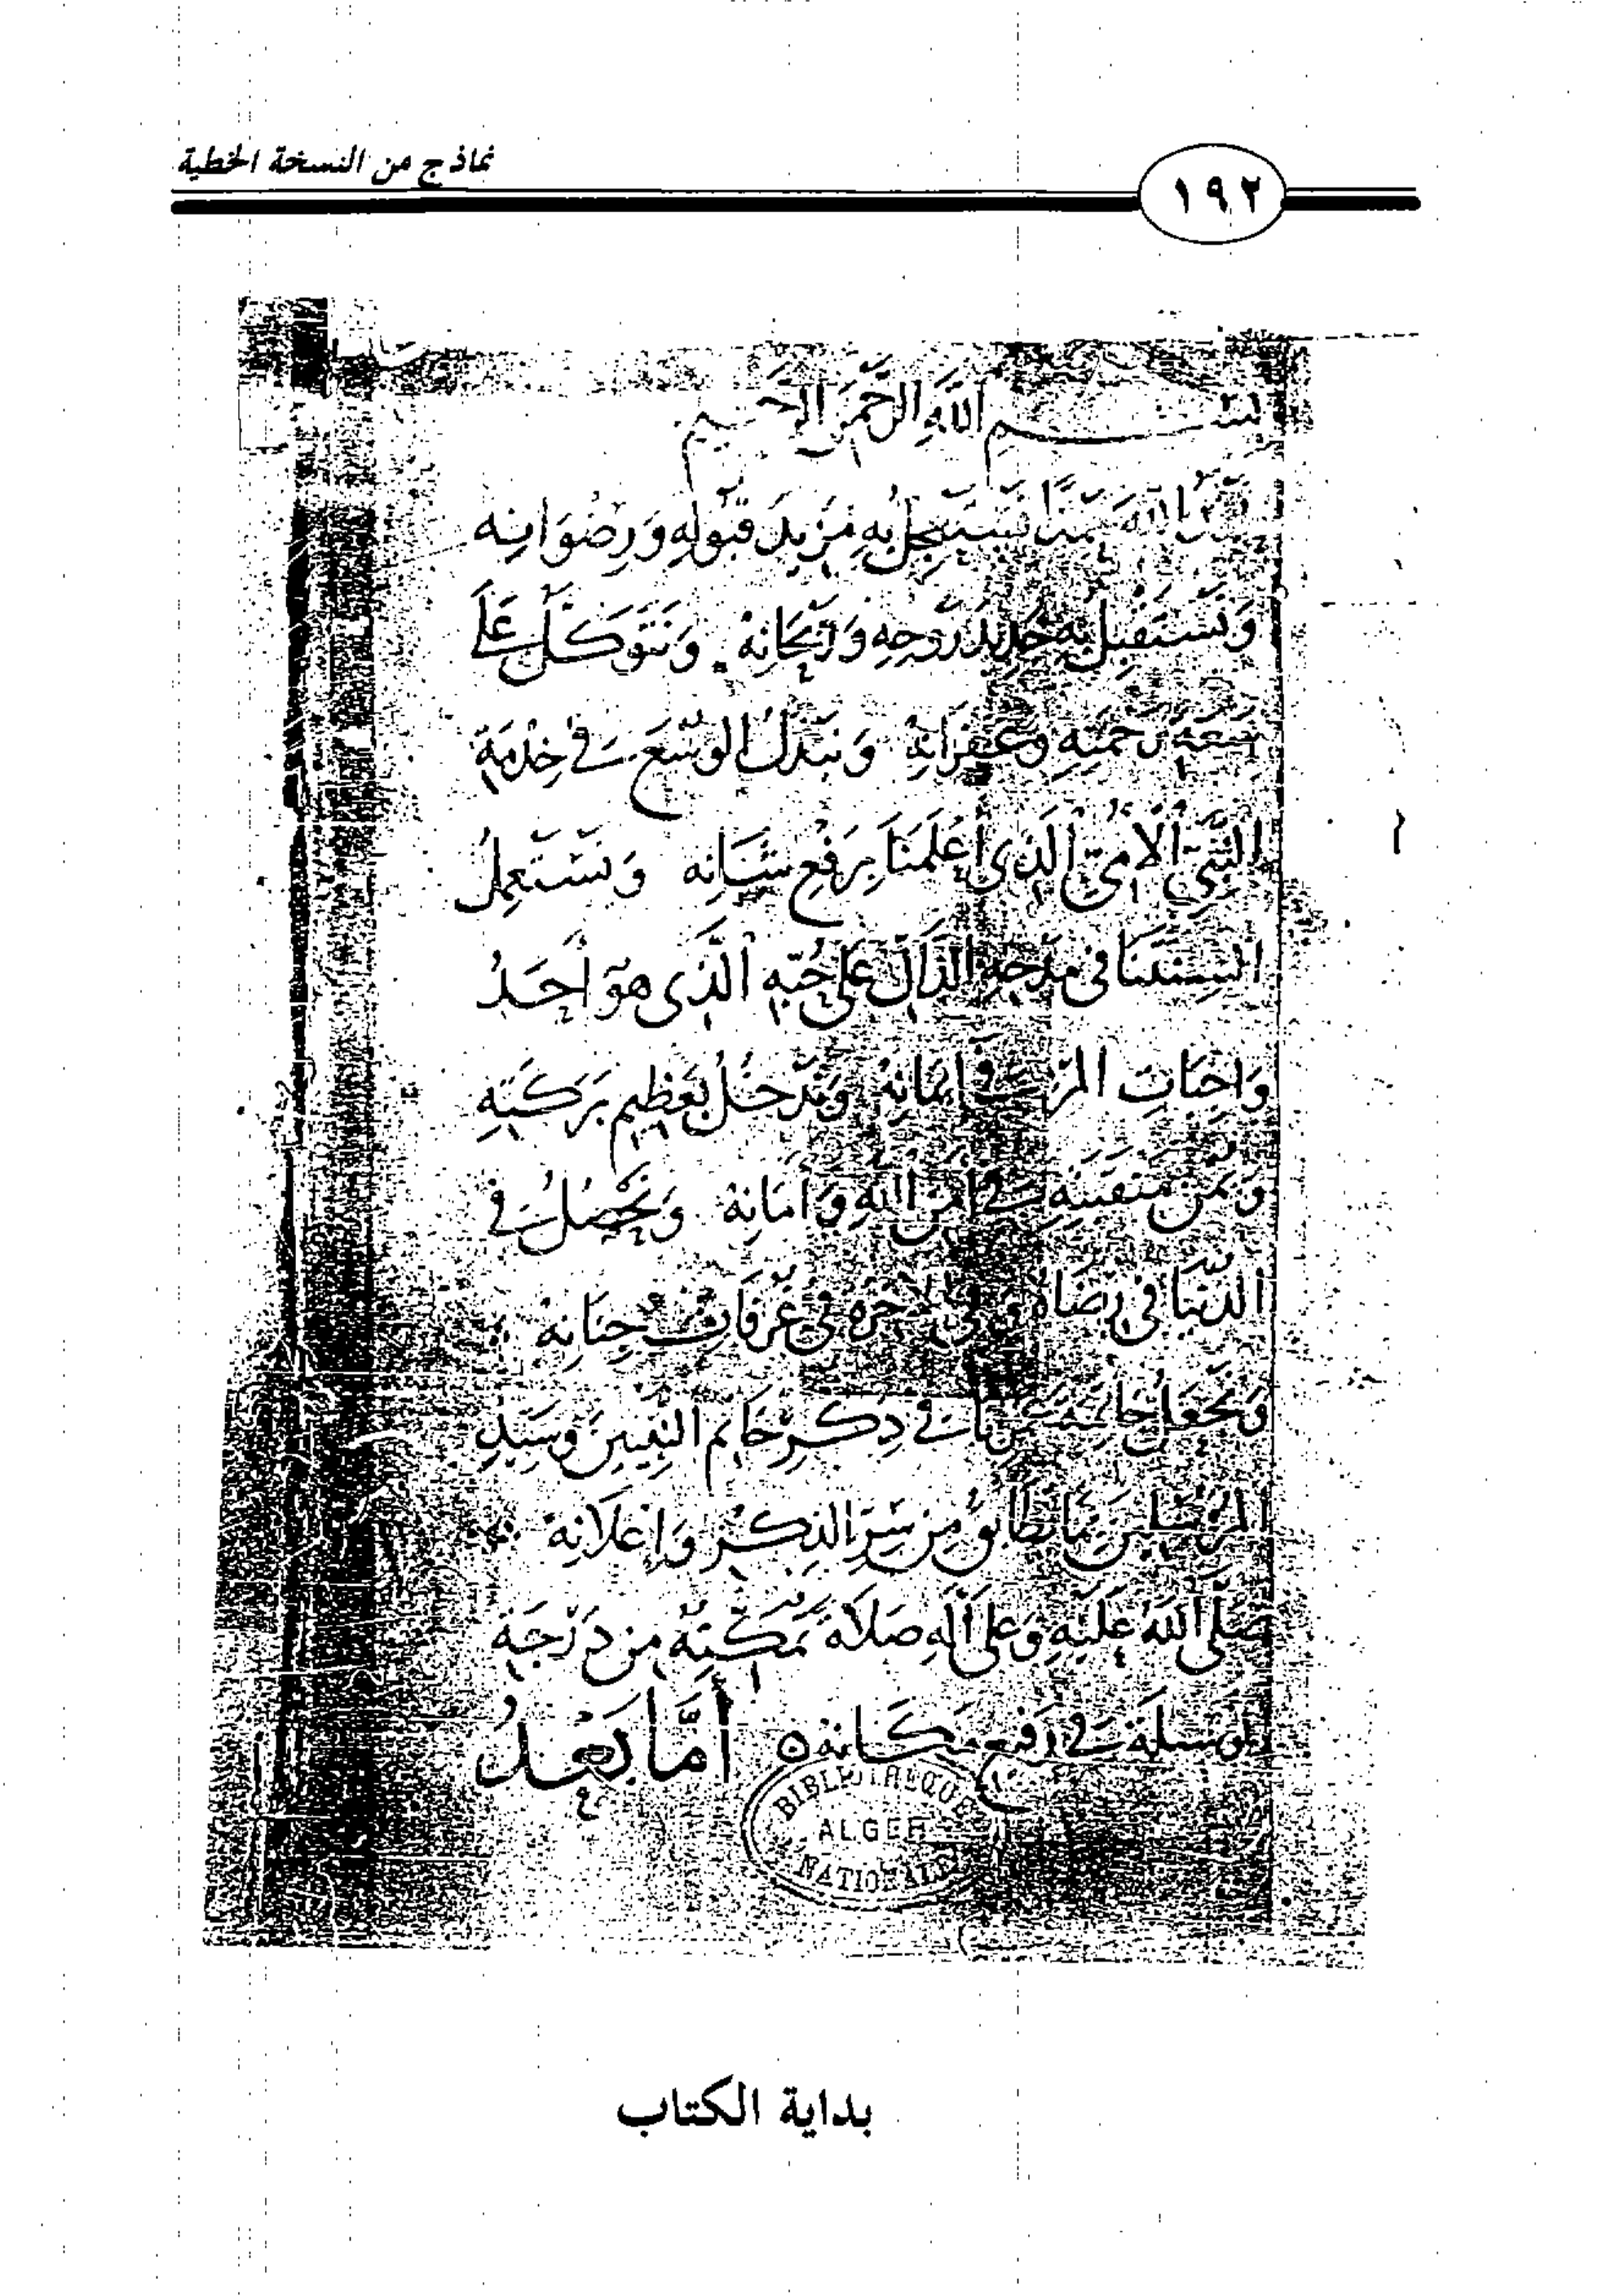 نماذج من النسخة الخطية
١٩٢
بسم الله الرحمن الرحيم
الله بما نستجزل به مزيد قبوله ورضوانه
ونستقبل به جديد روحه وريحانه ونتوكل على
سعة رحمته وغفرانه ونبذل الوسع في خدمة
النبي الأمي الذي أعلمنا برفع شانه ونستعمل
ألسنتنا في مدحه الدال على حبه الذي هو أحد
واجبات المرء في إيمانه وندخل بعظيم بركته
ويمن منقبته في أمن الله وأمانه ونحصل في
الدنيا في رضاه وفي الآخرة في غرفات جنانه
ونجعل خاتمة في ذكر خاتم النبيين وسيد
المرسلين ما تطابق من سر الذكر وإعلانه
صلى الله عليه وعلى آله صلاة تمكنه من درجة
الوسيلة في رفيع مكانه أما بعد
BIBLIOTHEQUE
ALGER
NATIONALE
بداية الكتاب